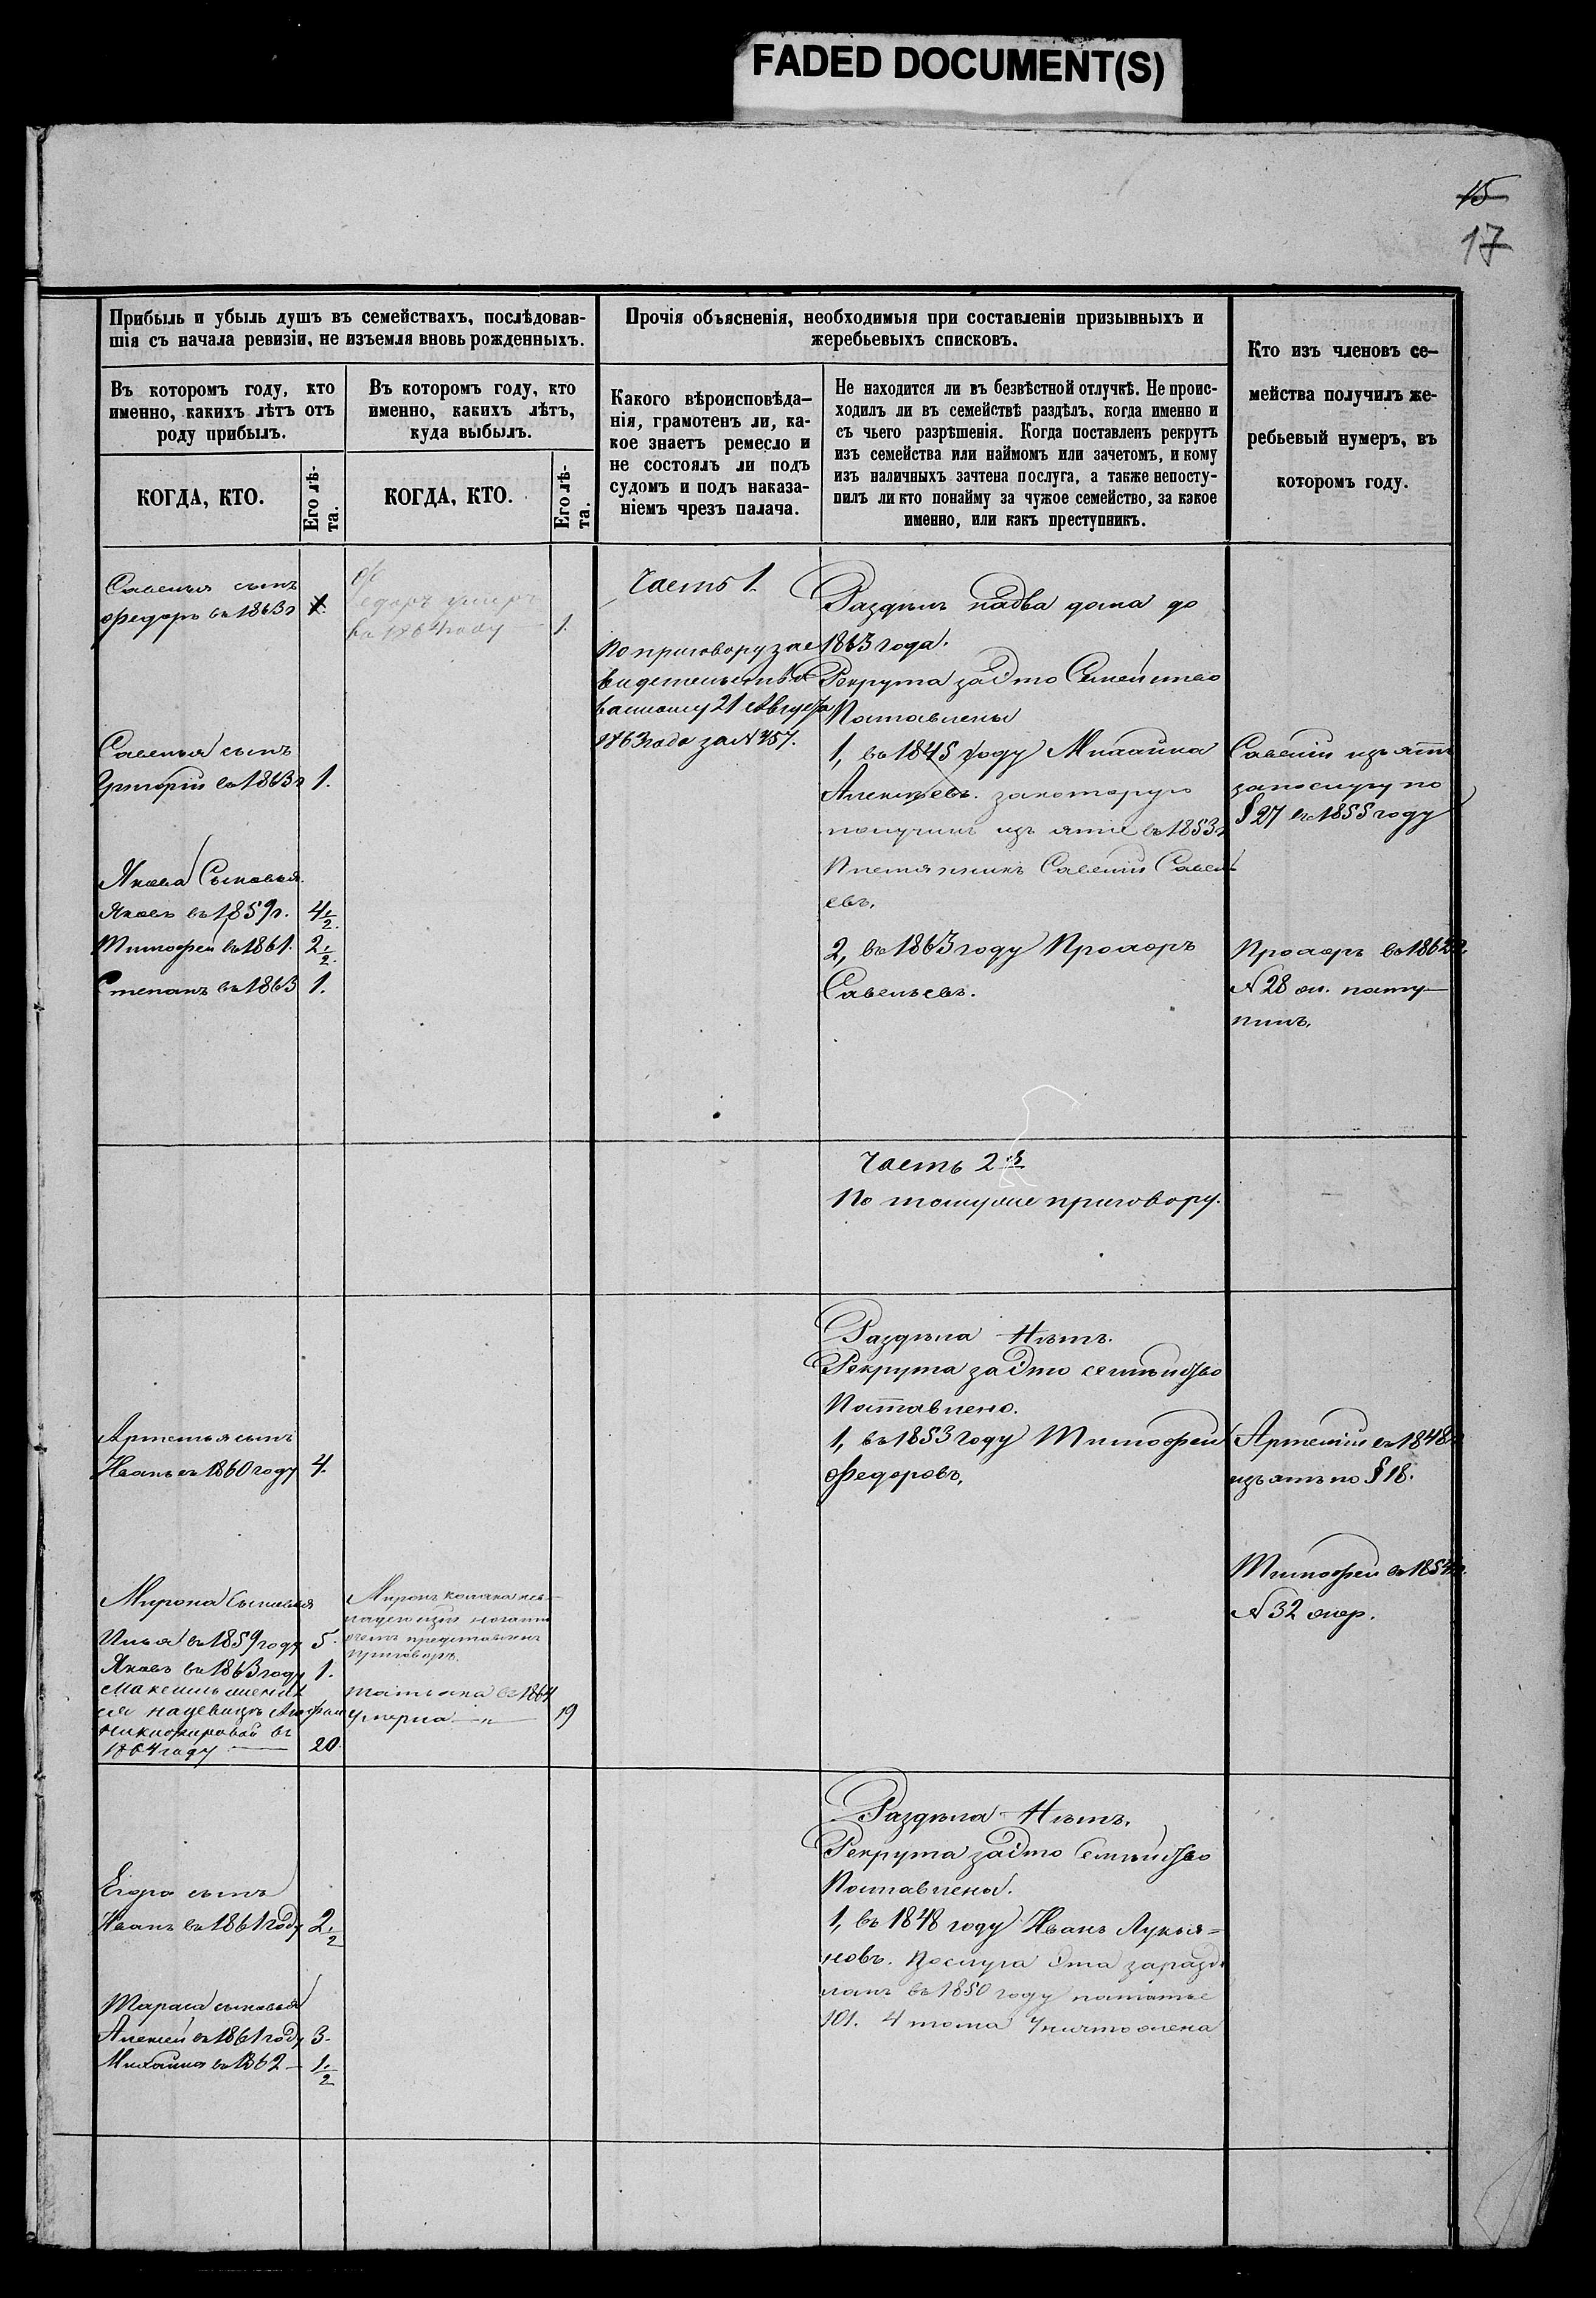 FADED DOCUMENT(S)
15
17
Прибыль и убыль душъ въ семействахъ, послѣдовав-
шія съ начала ревизіи, не изъемля вновь рожденныхъ.
Въ которомъ году, кто
именно, какихъ лѣтъ отъ
роду прибылъ.
КОГДА, КТО.
Его лѣ-
та.
Въ которомъ году, кто
именно, какихъ лѣтъ,
куда выбылъ.
КОГДА, КТО.
Его лѣ-
та.
Прочія объясненія, необходимыя при составленіи призывныхъ и
жеребьевыхъ списковъ.
Какого вѣроисповѣда-
нія, грамотенъ ли, ка-
кое знаетъ ремесло и
не состоялъ ли подъ
судомъ и подъ наказа-
ніемъ чрезъ палача.
Не находится ли въ безвѣстной отлучкѣ. Не проис-
ходилъ ли въ семействѣ раздѣлъ, когда именно и
съ чьего разрѣшенія. Когда поставленъ рекрутъ
изъ семейства или наймомъ или зачетомъ, и кому
изъ наличныхъ зачтена послуга, а также непосту-
пилъ ли кто понайму за чужое семейство, за какое
именно, или какъ преступникъ.
Кто изъ членовъ се-
мейства получилъ же-
ребьевый нумеръ, въ
которомъ году.
Савелья сынъ
Федоръ въ 1863г 1.
Федоръ умеръ
въ 1864 году 1.
Часть 1.
По приговору зас
видетельство
ванному 21 Августа
1863 года за N 457.
Раздѣлъ на два дома до
1863 года.
Рекрута за это Семейство
Поставлены
1, въ 1845 году Михайла
Алексѣевъ. за которую
получилъ изъятіе въ 1853г
Племянникъ Савелій Савель
евъ.
2, въ 1863 году Прохоръ
Савельевъ.
Савелій изъятъ
за послугу по
§ 27 въ 1855 году
Прохоръ въ 1862г.
N 28 посту-
пилъ.
Савелья сынъ
Григорій въ 1863г 1.
Якова Сыновья.
Яковъ въ 1859г. 4 1/2.
Тимофей въ 1861. 2 1/2.
Степанъ въ 1863 1.
Часть 2я
По томуже приговору.
Раздѣла Нѣтъ.
Рекрута за это семейство
Поставлено.
1, въ 1853 году Тимофей
Федоровъ,
Артемій въ 1848г
изъятъ по § 18.
Тимофей въ 1854г.
N 32 жер.
Артемья сынъ
Иванъ въ 1860 году 4.
Мирона Сыновья
Илья въ 1859 году 5.
Яковъ въ 1863 году 1.
Максимъ женил
ся на девицѣ
Никифоровой въ
1864 году 20.
Миронъ
чемъ представленъ
приговоръ.
Татьяна въ 1864
Умерла 19
Раздѣла Нѣтъ.
Рекрута за это Семейство
Поставлена.
1, въ 1848 году Иванъ Лукья=
новъ. Послуга эта за разд.
ломъ въ 1850 году по статье
101. 4 тома Уничтожена
Егора сынъ
Иванъ въ 1861 году 2 1/2
Тараса сыновья
Алексей въ 1861 году 3.
Михайла въ 1862 1 1/2